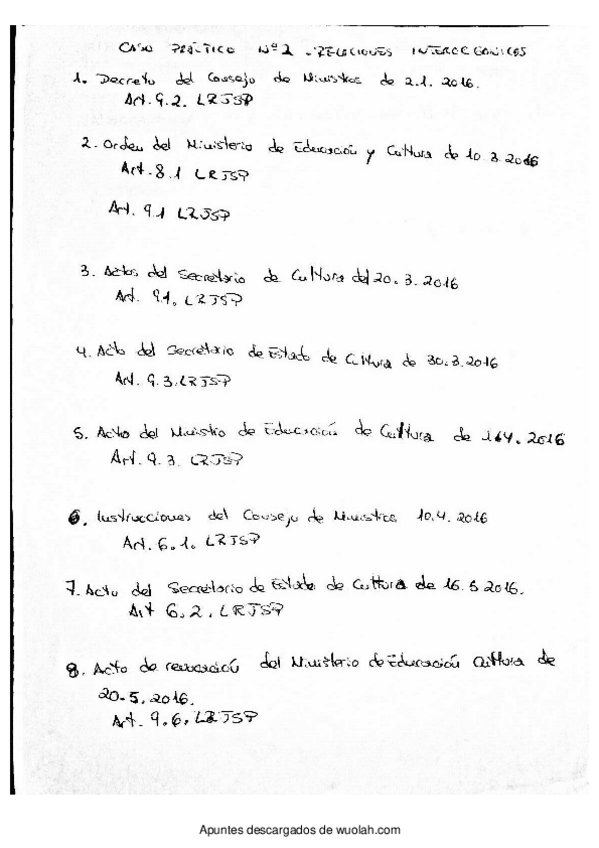 CASO PRÁCTICO Nº 2 - RELACIONES INTERORGÁNICAS
1. Decreto del Consejo de Ministros de 2.1. 2016.
Art. 9.2. LRJSP
2. Orden del Ministerio de Educación y Cultura de 10.3.2016
Art. 8.1 LRJSP
Art. 9.1 LRJSP
3. Actos del Secretario de Cultura del 20.3.2016
Art. 9.1. LRJSP
4. Acto del Secretario de Estado de Cultura de 30.3.2016
Art. 9.3. LRJSP
5. Acto del Ministro de Educación de Cultura de 2016
Art. 9.3. LRJSP
6. Instrucciones del Consejo de Ministros 10.4.2016
Art. 6.1. LRJSP
7. Acto del Secretario de Estado de Cultura de 16.5 2016.
Art 6.2. LRJSP
8. Acto de revocación del Ministerio de Educación Cultura de
20-5.2016.
Art. 9.6. LRJSP
Apuntes descargados de wuolah.com